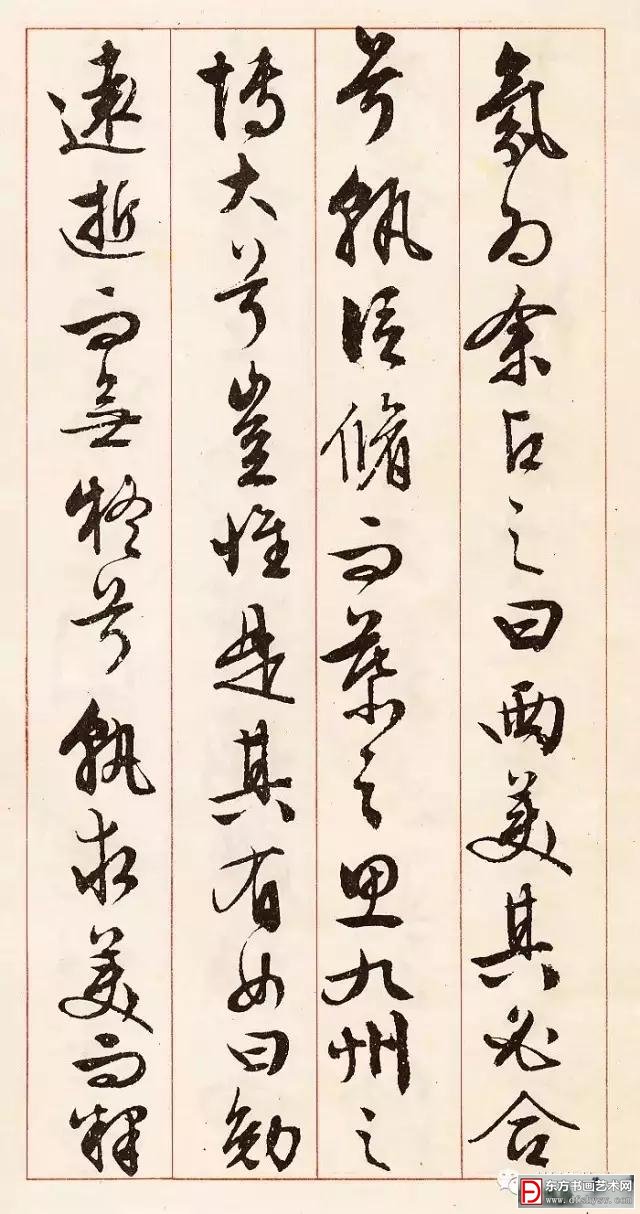 氛為余占之曰兩美其必合
兮孰信脩而慕之思九州之
博大兮豈惟是其有女曰勉
遠逝而無疑兮孰求美而釋
东方书画艺术网